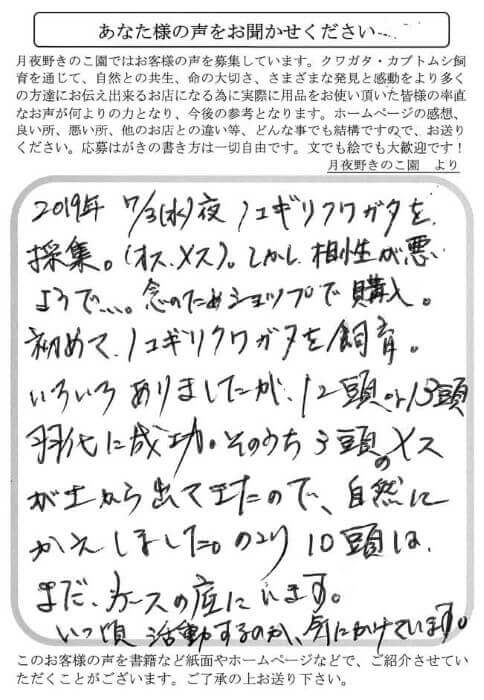 あなた様の声をお聞かせください
月夜野きのこ園ではお客様の声を募集しています。クワガタ・カブトムシ飼
育を通じて、自然との共生、命の大切さ、さまざまな発見と感動をより多く
の方達にお伝え出来るお店になる為に実際に用品をお使い頂いた皆様の率直
なお声が何よりの力となり、今後の参考となります。ホームページの感想、
良い所、悪い所、他のお店との違い等、どんな事でも結構ですので、お送り
ください。応募はがきの書き方は一切自由です。文でも絵でも大歓迎です!
月夜野きのこ園 より
2019年 7/3(水)夜 ノコギリクワガタを
採集。(オス、メス)。しかし 相性が悪い
ようで、、、。念のためショップで購入。
初めて、ノコギリクワガタを飼育。
いろいろありましたが、12頭 13頭
羽化に成功。そのうち3頭のメス
が土から出てきたので、自然に
かえしました。のこり10頭は、
まだ、ケースの底にいます。
いつ頃 活動するのか、気にかけています。
このお客様の声を書籍など紙面やホームページなどで、ご紹介させてい
ただくことがございます。ご了承の上お送り下さい。